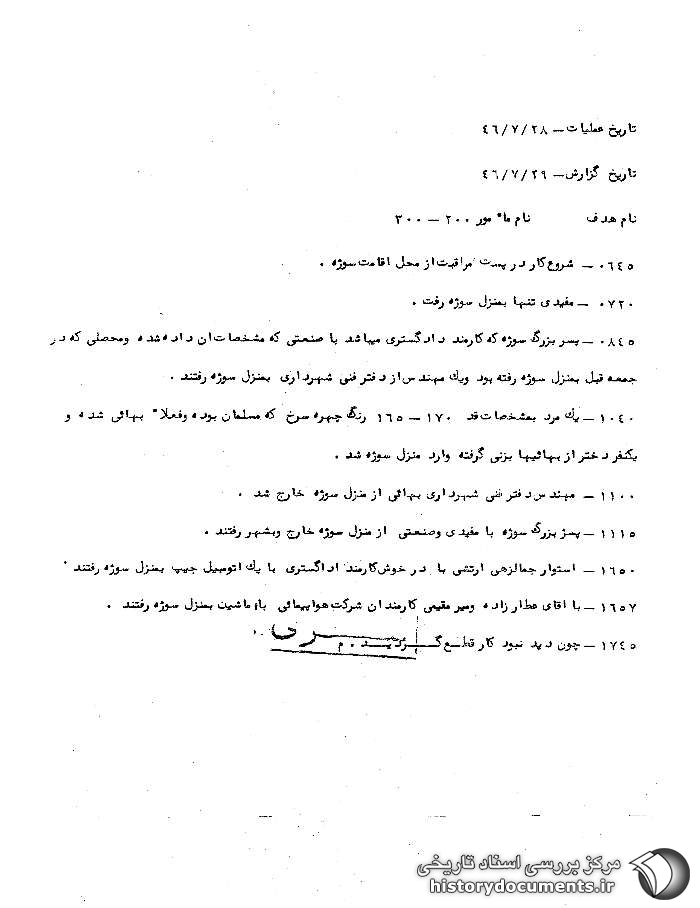 تاریخ عملیات — ٤٦/٧/٢٨
تاریخ گزارش — ٤٦/٧/٢٩
نام هدف نام مأمور ٢٠٠ — ٣٠٠
٠٦٤٥ — شروع کار در پست مراقبت از محل اقامت سوژه .
٠٧٢٠ — مفیدی تنها بمنزل سوژه رفت .
٠٨٤٥ — پسر بزرگ سوژه که کارمند دادگستری میباشد با صنعتی که مشخصات آن داده شده ومحصلی که در
جمعه قبل بمنزل سوژه رفته بود ویک مهندس از دفتر فنی شهرداری بمنزل سوژه رفتند .
١٠٤٠ — یک مرد بمشخصات قد ١٧٠ — ١٦٥ رنگ چهره سرخ که مسلمان بوده وفعلا" بهائی شده و
یکنفر دختر از بهائیها بزنی گرفته وارد منزل سوژه شد .
١١٠٠ — مهندس دفتر فنی شهرداری بهائی از منزل سوژه خارج شد .
١١١٥ — پسر بزرگ سوژه با مفیدی وصنعتی از منزل سوژه خارج وبشهر رفتند .
١٦٥٠ — استوار جمالزهی ارتشی با درخوش کارمند اداگستری با یک اتومبیل جیپ بمنزل سوژه رفتند
١٦٥٧ — با اقای عطارزاده ومیر مقیمی کارمندان شرکت هواپیمائی با ماشین بمنزل سوژه رفتند .
١٧٤٥ — چون دید نبود کار قطع گردید . م
سری
مرکز بررسی اسناد تاریخی
historydocuments.ir